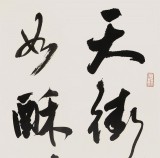 天街
如酥